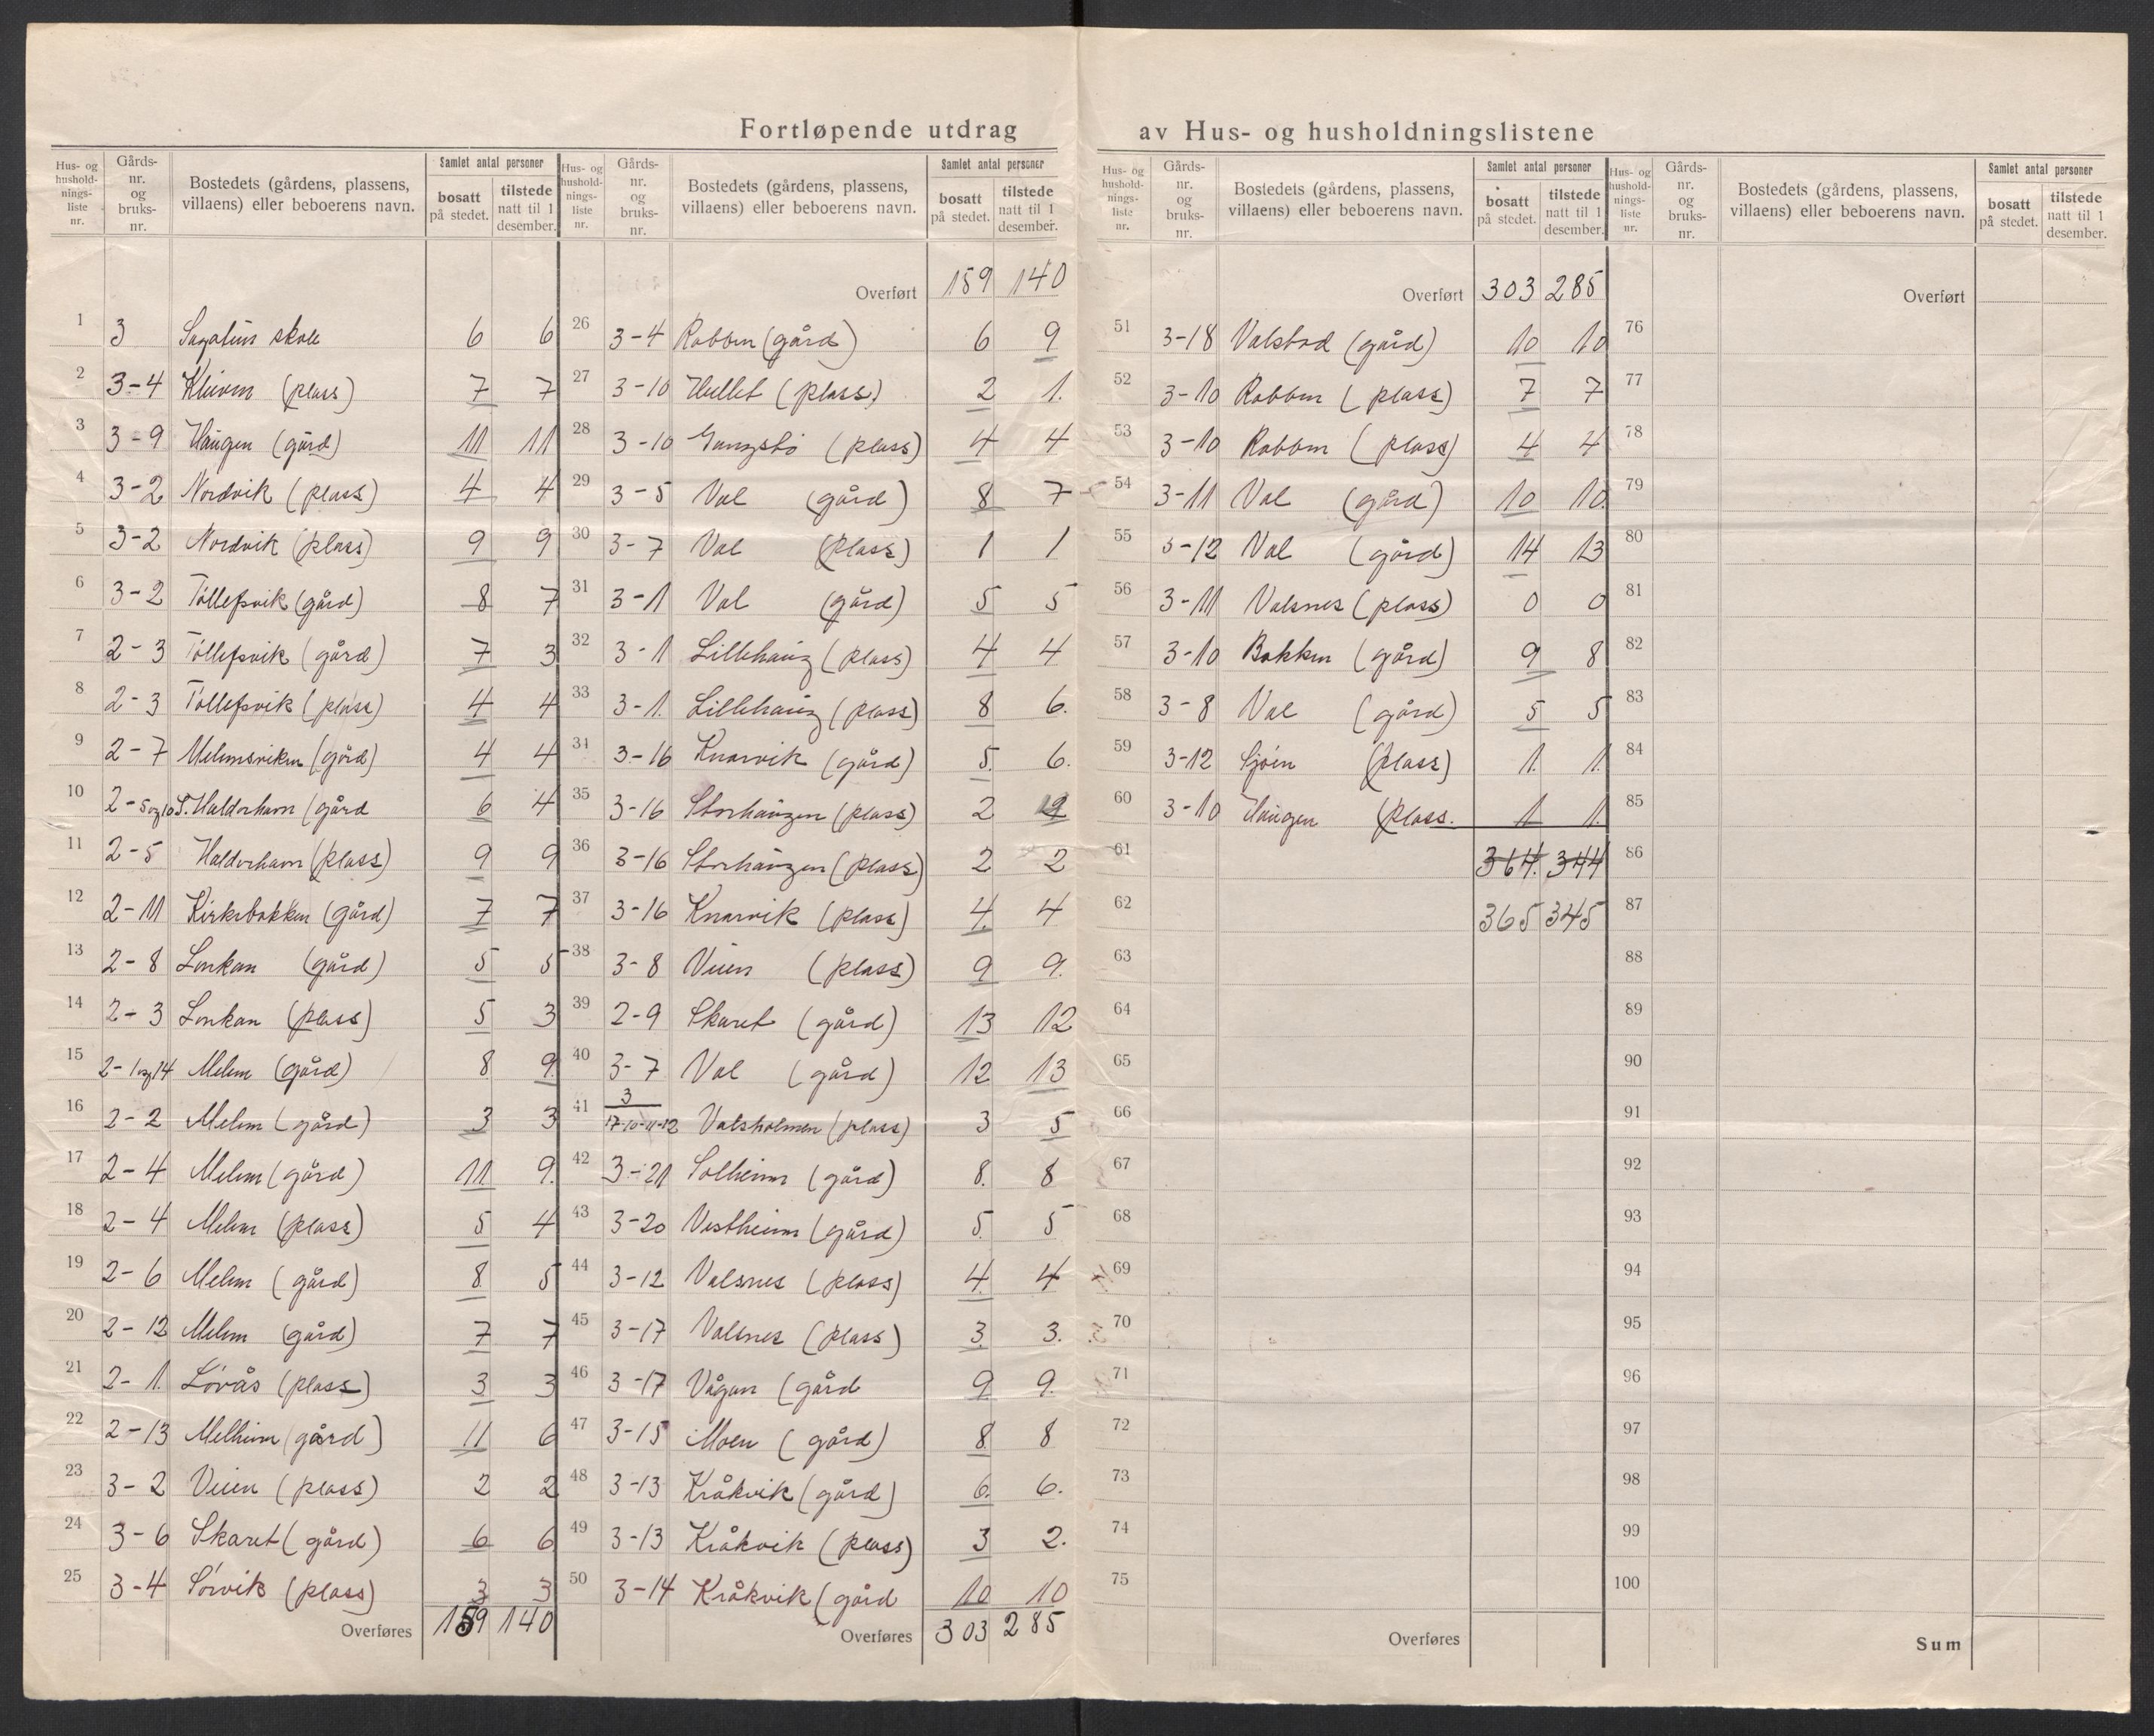 Fortløpende utdrag av Hus- og husholdningslistene
Hus- og husholdnings-liste nr. Gårds-nr. og bruks-nr. Bostedets (gårdens, plassens, villaens) eller beboerens navn. Samlet antal personer bosatt på stedet. tilstede natt til 1 desember.
1 3 skole 6 6
2 3-4 (plass) 7 7
3 3-9 Haugen (gård) 11 11
4 3-2 Nordvik (plass) 4 4
5 3-2 Nordvik (plass) 9 9
6 3-2 Tollefsvik (gård) 8 7
7 2-3 Tollefsvik (gård) 7 3
8 2-3 Tollefsvik (plass) 4 4
9 2-7 Melemsviken (gård) 4 4
10 2-5og10 S. Halderhavn (gård 6 4
11 2-5 Halderhavn (plass) 9 9
12 2-11 Kirkebakken (gård) 7 7
13 2-8 Lonkan (gård) 5 5
14 2-3 Lonkan (plass) 5 3
15 2-1og14 Melem (gård) 8 9
16 2-2 Melem (gård) 3 3
17 2-4 Melem (gård) 11 9.
18 2-4 Melem (plass) 5 4
19 2-6 Melem (gård) 8 5
20 2-12 Melem (gård) 7 7
21 2-1. Lövås (plass) 3 3
22 2-13 Melheim (gård) 11 6
23 3-2 Veien (plass) 2 2
24 3-6 Skaret (gård) 6 6
25 3-4 Sörvik (plass) 3 3
Overføres 159 140
Hus- og husholdnings-liste nr. Gårds-nr. og bruks-nr. Bostedets (gårdens, plassens, villaens) eller beboerens navn. Samlet antal personer bosatt på stedet. tilstede natt til 1 desember.
Overført 159 140
26 3-4 Robben (gård) 6 9
27 3-10 Hullet (plass) 2 1.
28 3-10 (plass) 4 4
29 3-5 Val (gård) 8 7
30 3-7 Val (plass) 1 1
31 3-1 Val (gård) 5 5
32 3-1 Lillehaug (plass) 4 4
33 3-1. Lillehaug (plass) 8 6.
34 3-16 Knarvik (gård) 5. 6.
35 3-16 Storhaugen (plass) 2 2
36 3-16 Storhaugen (plass) 2 2
37 3-16 Knarvik (plass) 4. 4
38 3-8 Veien (plass) 9 9.
39 2-9 Skaret (gård) 13 12
40 3-7 Val (gård) 12 13
41 3 17-10-11-12 Valsholmen (plass) 3 5
42 3-21 Solheim (gård) 8. 8
43 3-20 Vestheim (gård) 5. 5
44 3-12 Valsnes (plass) 4. 4
45 3-17 Valsnes (plass) 3. 3.
46 3-17 Vågan (gård 9. 9.
47 3-15 Moen (gård) 8 8
48 3-13 Kråkvik (gård) 6. 6.
49 3-13 Kråkvik (plass) 3 2.
50 3-14 Kråkvik (gård 10 10
Overføres 303 285
Hus- og husholdnings-liste nr. Gårds-nr. og bruks-nr. Bostedets (gårdens, plassens, villaens) eller beboerens navn. Samlet antal personer bosatt på stedet. tilstede natt til 1 desember.
Overført 303 285
51 3-18 Valstad (gård) 10 10
52 3-10 Robben (plass) 7 7
53 3-10 Robben (plass) 4 4
54 3-11 Val (gård) 10 10.
55 3-12 Val (gård) 14 13
56 3-11 Valsnes (plass) 0 0
57 3-10 Bakken (gård) 9 8
58 3-8 Val (gård) 5 5
59 3-12 Sjøen (plass) 1. 1.
60 3-10 Haugen (plass. 1 1.
61 364. 344
62 365 345
63
64
65
66
67
68
69
70
71
72
73
74
75
Overføres
Hus- og husholdnings-liste nr. Gårds-nr. og bruks-nr. Bostedets (gårdens, plassens, villaens) eller beboerens navn. Samlet antal personer bosatt på stedet. tilstede natt til 1 desember.
Overført
76
77
78
79
80
81
82
83
84
85
86
87
88
89
90
91
92
93
94
95
96
97
98
99
100
Sum